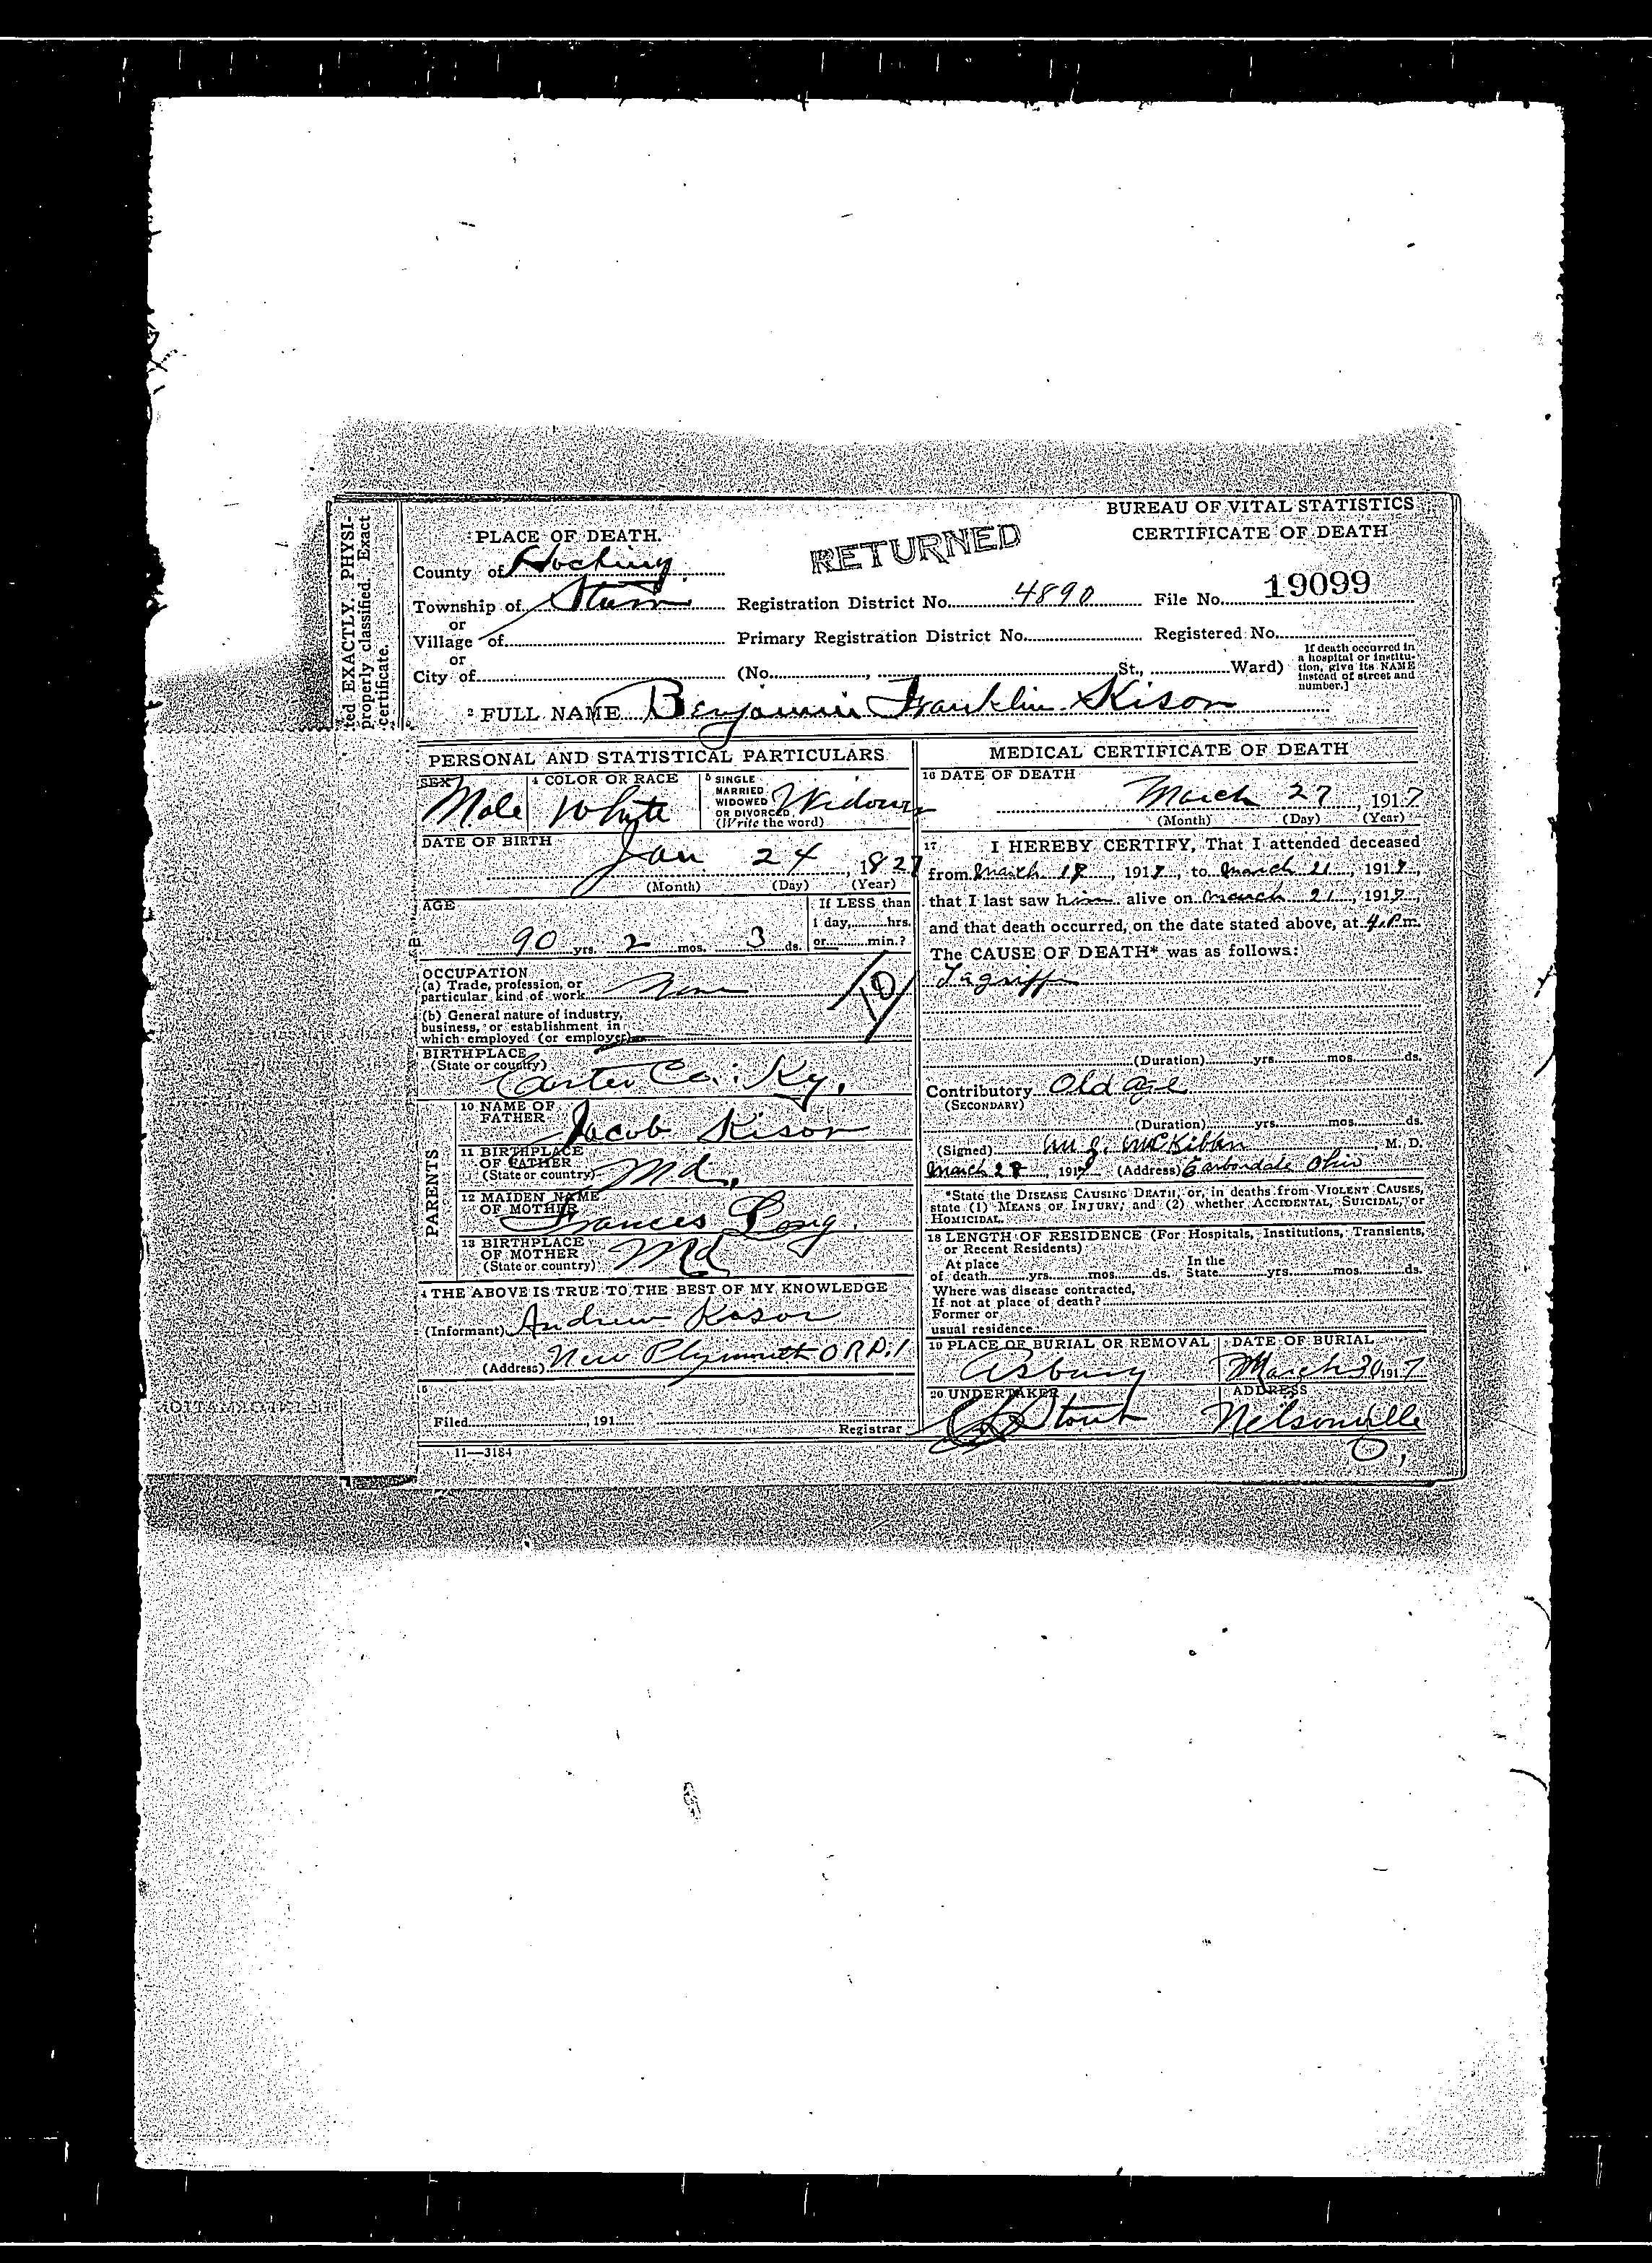 BUREAU OF VITAL STATISTICS
CERTIFICATE OF DEATH
RETURNED
ted EXACTLY. PHYSI-
properly classified. Exact
certificate.
PLACE OF DEATH.
County of Hocking
Township of Starr Registration District No. 4890 File No. 19099
or
Village of Primary Registration District No. Registered No.
or
City of (No. , St., Ward)
If death occurred in
a hospital or institu-
tion, give its NAME
instead of street and
number.]
2 FULL NAME Benjamin Franklin Kison
PERSONAL AND STATISTICAL PARTICULARS
SEX Male
4 COLOR OR RACE White
5 SINGLE
MARRIED
WIDOWED
OR DIVORCED
(Write the word)
DATE OF BIRTH
Jan 24, 1827
(Month) (Day) (Year)
AGE
90 yrs. 2 mos. 3 ds.
If LESS than
1 day, hrs.
or min.?
OCCUPATION
(a) Trade, profession, or
particular kind of work None
10
(b) General nature of industry,
business, or establishment in
which employed (or employer)
BIRTHPLACE
(State or country)
Carter Co. Ky.
PARENTS
10 NAME OF
FATHER Jacob Kison
11 BIRTHPLACE
OF FATHER
(State or country) Md.
12 MAIDEN NAME
OF MOTHER Frances Long.
13 BIRTHPLACE
OF MOTHER
(State or country) Md
4 THE ABOVE IS TRUE TO THE BEST OF MY KNOWLEDGE
(Informant) Andrew Kason
(Address) New Plymouth O
Filed , 191 Registrar
11—3184
MEDICAL CERTIFICATE OF DEATH
16 DATE OF DEATH
March 27, 1917
(Month) (Day) (Year)
17 I HEREBY CERTIFY, That I attended deceased
from March 18, 1917, to March 21, 1917,
that I last saw him alive on March 21, 1917,
and that death occurred, on the date stated above, at 4 P.m.
The CAUSE OF DEATH* was as follows:
Lagripp
(Duration) yrs. mos. ds.
Contributory Old age
(SECONDARY)
(Duration) yrs. mos. ds.
(Signed) McKibben M. D.
March 28, 1917 (Address) Carbondale Ohio
*State the DISEASE CAUSING DEATH, or, in deaths from VIOLENT CAUSES,
state (1) MEANS OF INJURY; and (2) whether ACCIDENTAL, SUICIDAL, or
HOMICIDAL.
18 LENGTH OF RESIDENCE (For Hospitals, Institutions, Transients,
or Recent Residents)
At place In the
of death yrs. mos. ds. State yrs. mos. ds.
Where was disease contracted,
If not at place of death?
Former or
usual residence
19 PLACE OF BURIAL OR REMOVAL
Asbury
DATE OF BURIAL
March 30 1917
20 UNDERTAKER
Stout
ADDRESS
Nelsonville
O,